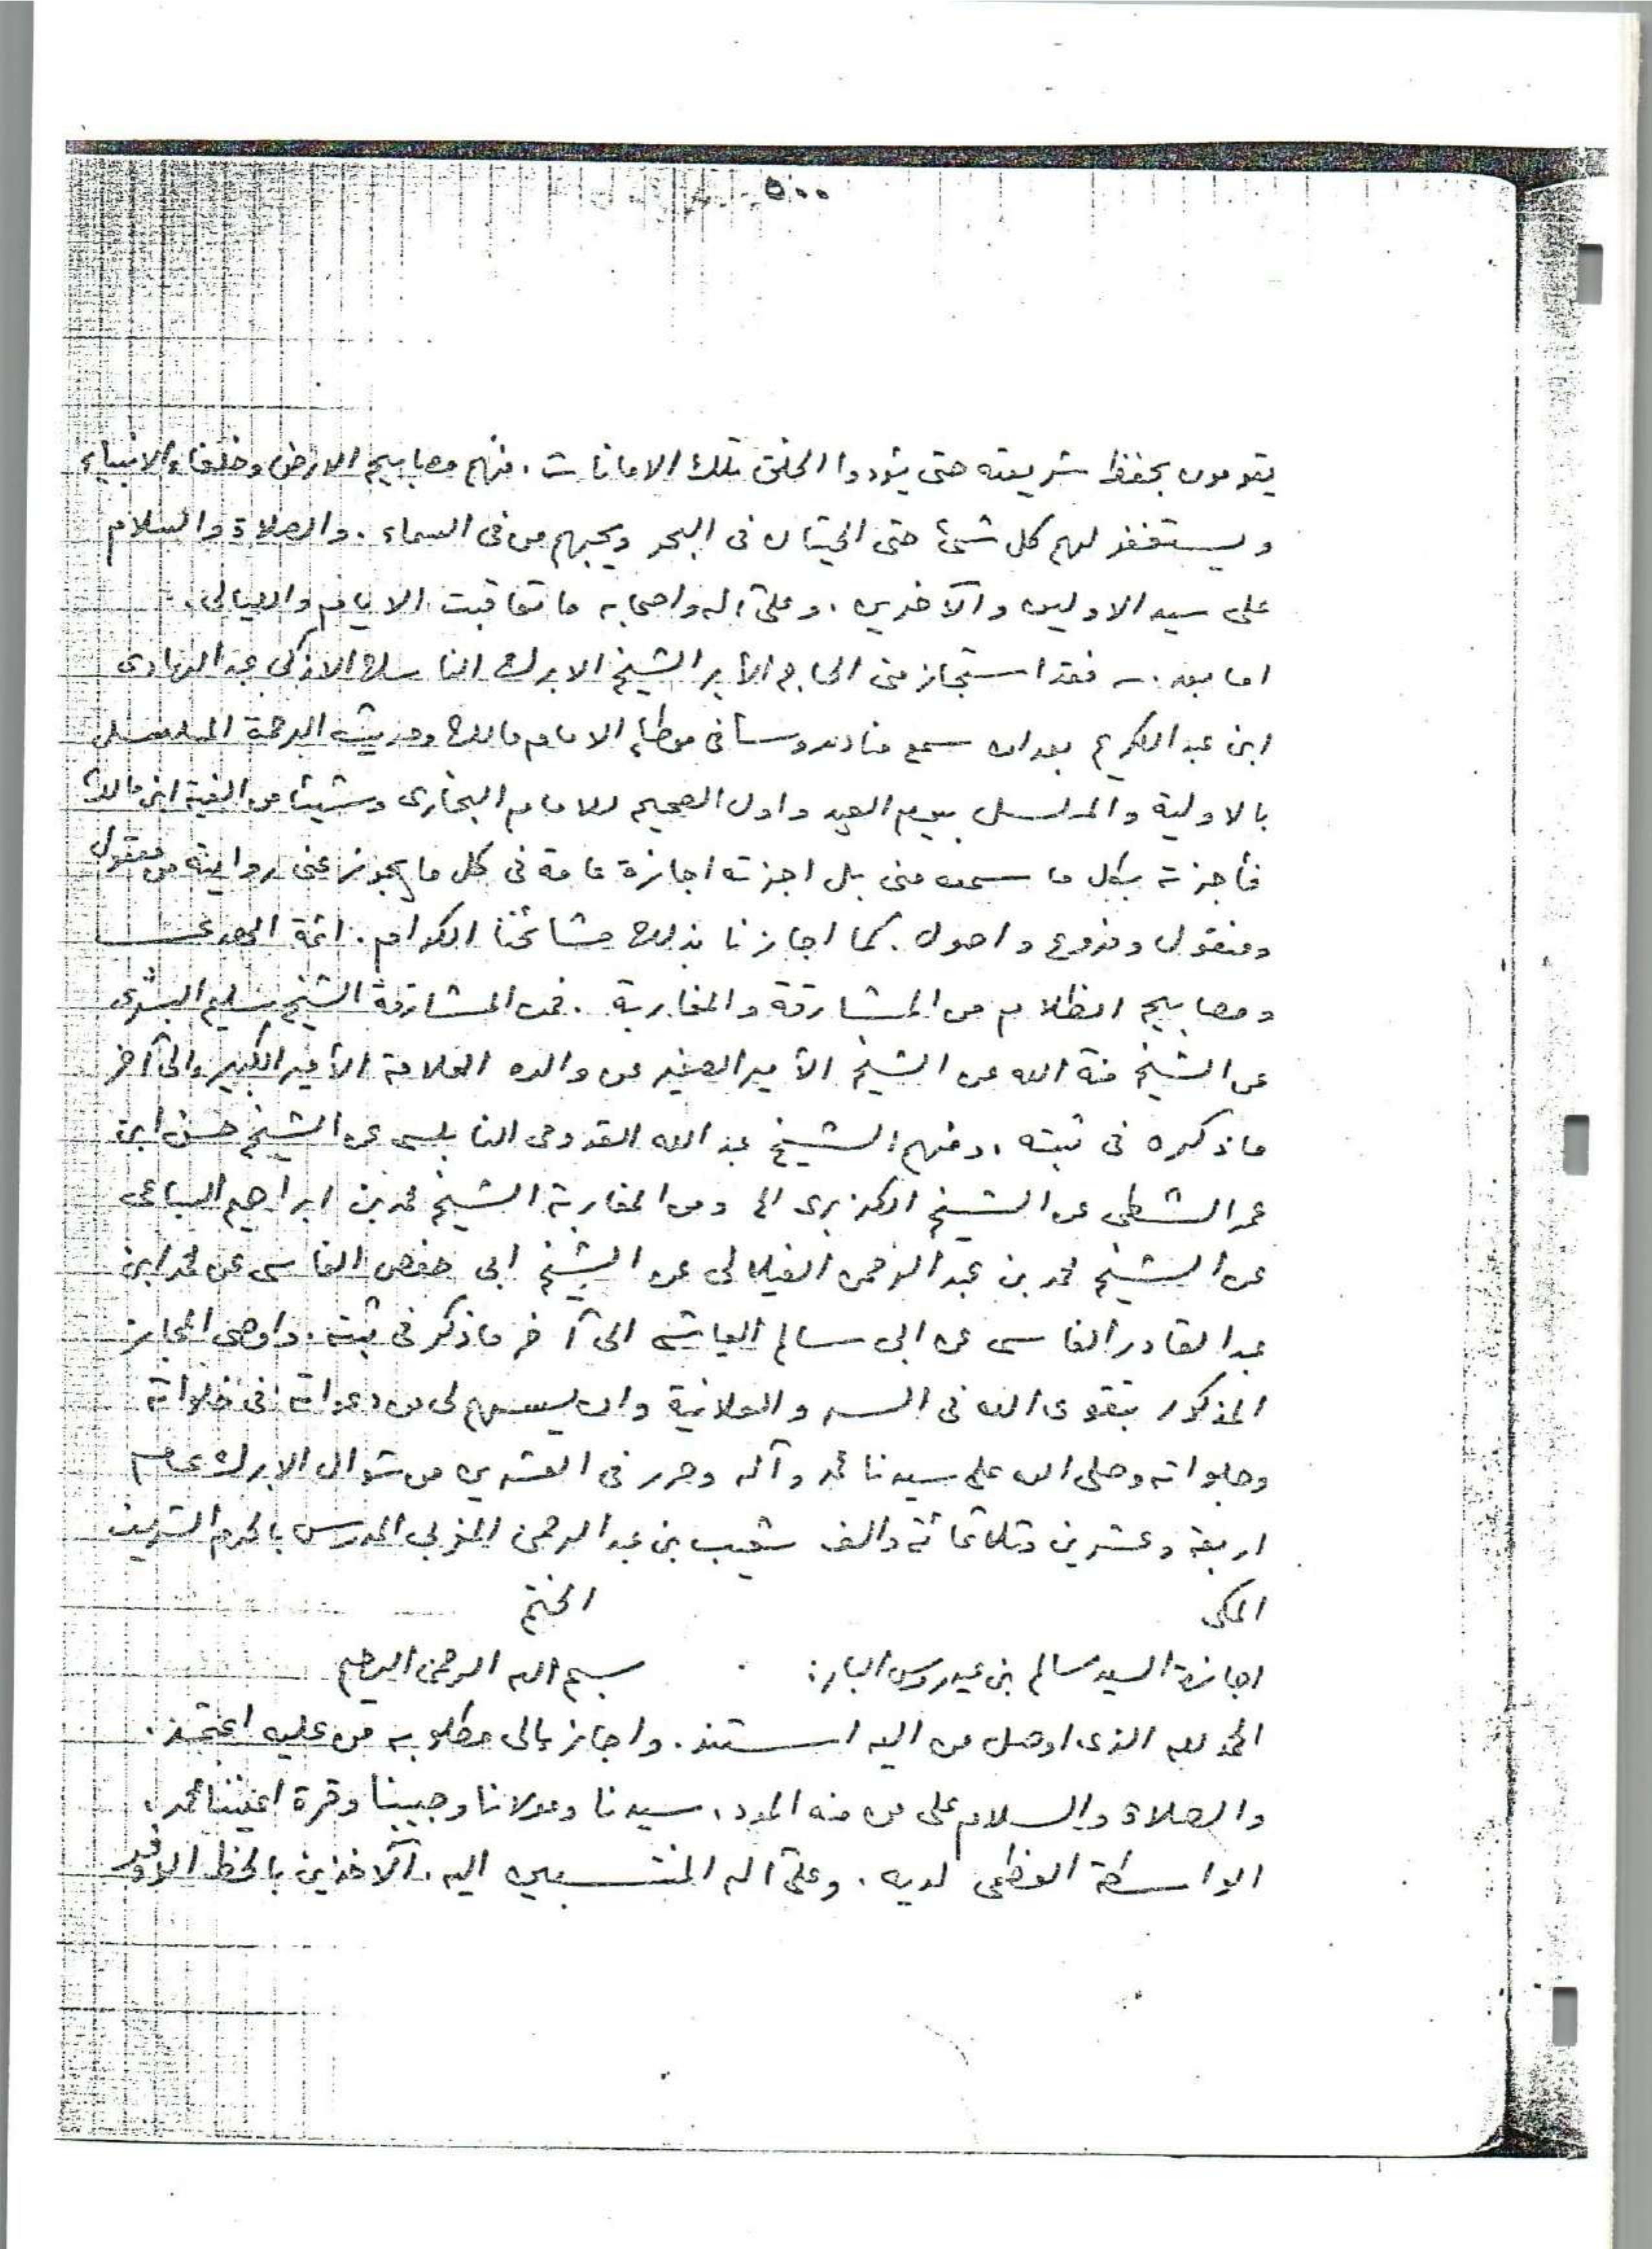 ٥٠٠
يقومون بحفظ شريعته حتى يؤدوا الخلق تلك الامانات. فهم مصابيح الارض وخلفاء الانبياء
ويستغفر لهم كل شئ حتى الحيتان فى البحر ويحبهم من فى السماء. والصلاة والسلام
على سيد الاولين والآخرين. وعلى آله واصحابه ما تعاقبت الايام والليالى.
اما بعد. فقد استجاز منى الحاج الأبر الشيخ الابرك الناسك الازكى عبد الهادى
ابن عبد الكريم بعد ان سمع منا دروسا فى موطإ الامام مالك وحديث الرحمة المسلسل
بالاولية والمسلسل بيوم العيد واول الصحيح للامام البخارى وشيئا من الفية ابن مالك
فأجزته بكل ما سمعه منى بل اجزته اجازة عامة فى كل ما يجوز عنى روايته من معقول
ومنقول وفروع واصول. كما اجازنا بذلك مشائخنا الكرام. ائمة الهدى
ومصابيح الظلام من المشارقة والمغاربة. فمن المشارقة الشيخ سليم البشرى
عن الشيخ منة الله عن الشيخ الأمير الصغير عن والده العلامة الأمير الكبير والى آخر
ما ذكره فى ثبته. ومنهم الشيخ عبد الله القدومى النابلسى عن الشيخ حسن ابن
عمر الشطى عن الشيخ الكزبرى الخ ومن المغاربة الشيخ محمد بن ابراهيم السباعى
عن الشيخ محمد بن عبد الرحمن الفيلالى عن الشيخ ابى حفص الفاسى عن محمد ابن
عبد القادر الفاسى عن ابى سالم العياشى الى آخر ما ذكر فى ثبته. واوصى المجاز
المذكور بتقوى الله فى السر والعلانية وان يسهم لى من دعواته فى خلواته
وجلواته وصلى الله على سيدنا محمد وآله وحرر فى العشرين من شوال الابرك عام
اربعة وعشرين وثلاثمائة والف شعيب بن عبد الرحمن المغربى المدرس بالحرم الشريف
المكى الختم
اجازة السيد سالم بن عيدروس البار: بسم الله الرحمن الرحيم
الحمد لله الذى اوصل من اليه استند. واجاز بالى مطلوبه من عليه اعتمد.
والصلاة والسلام على من منه المدد، سيدنا ومولانا وحبيبنا وقرة اعيننا محمد،
الواسطة العظمى لديه. وعلى آله المنتسبين اليه. الآخذين بالحظ الاوفر